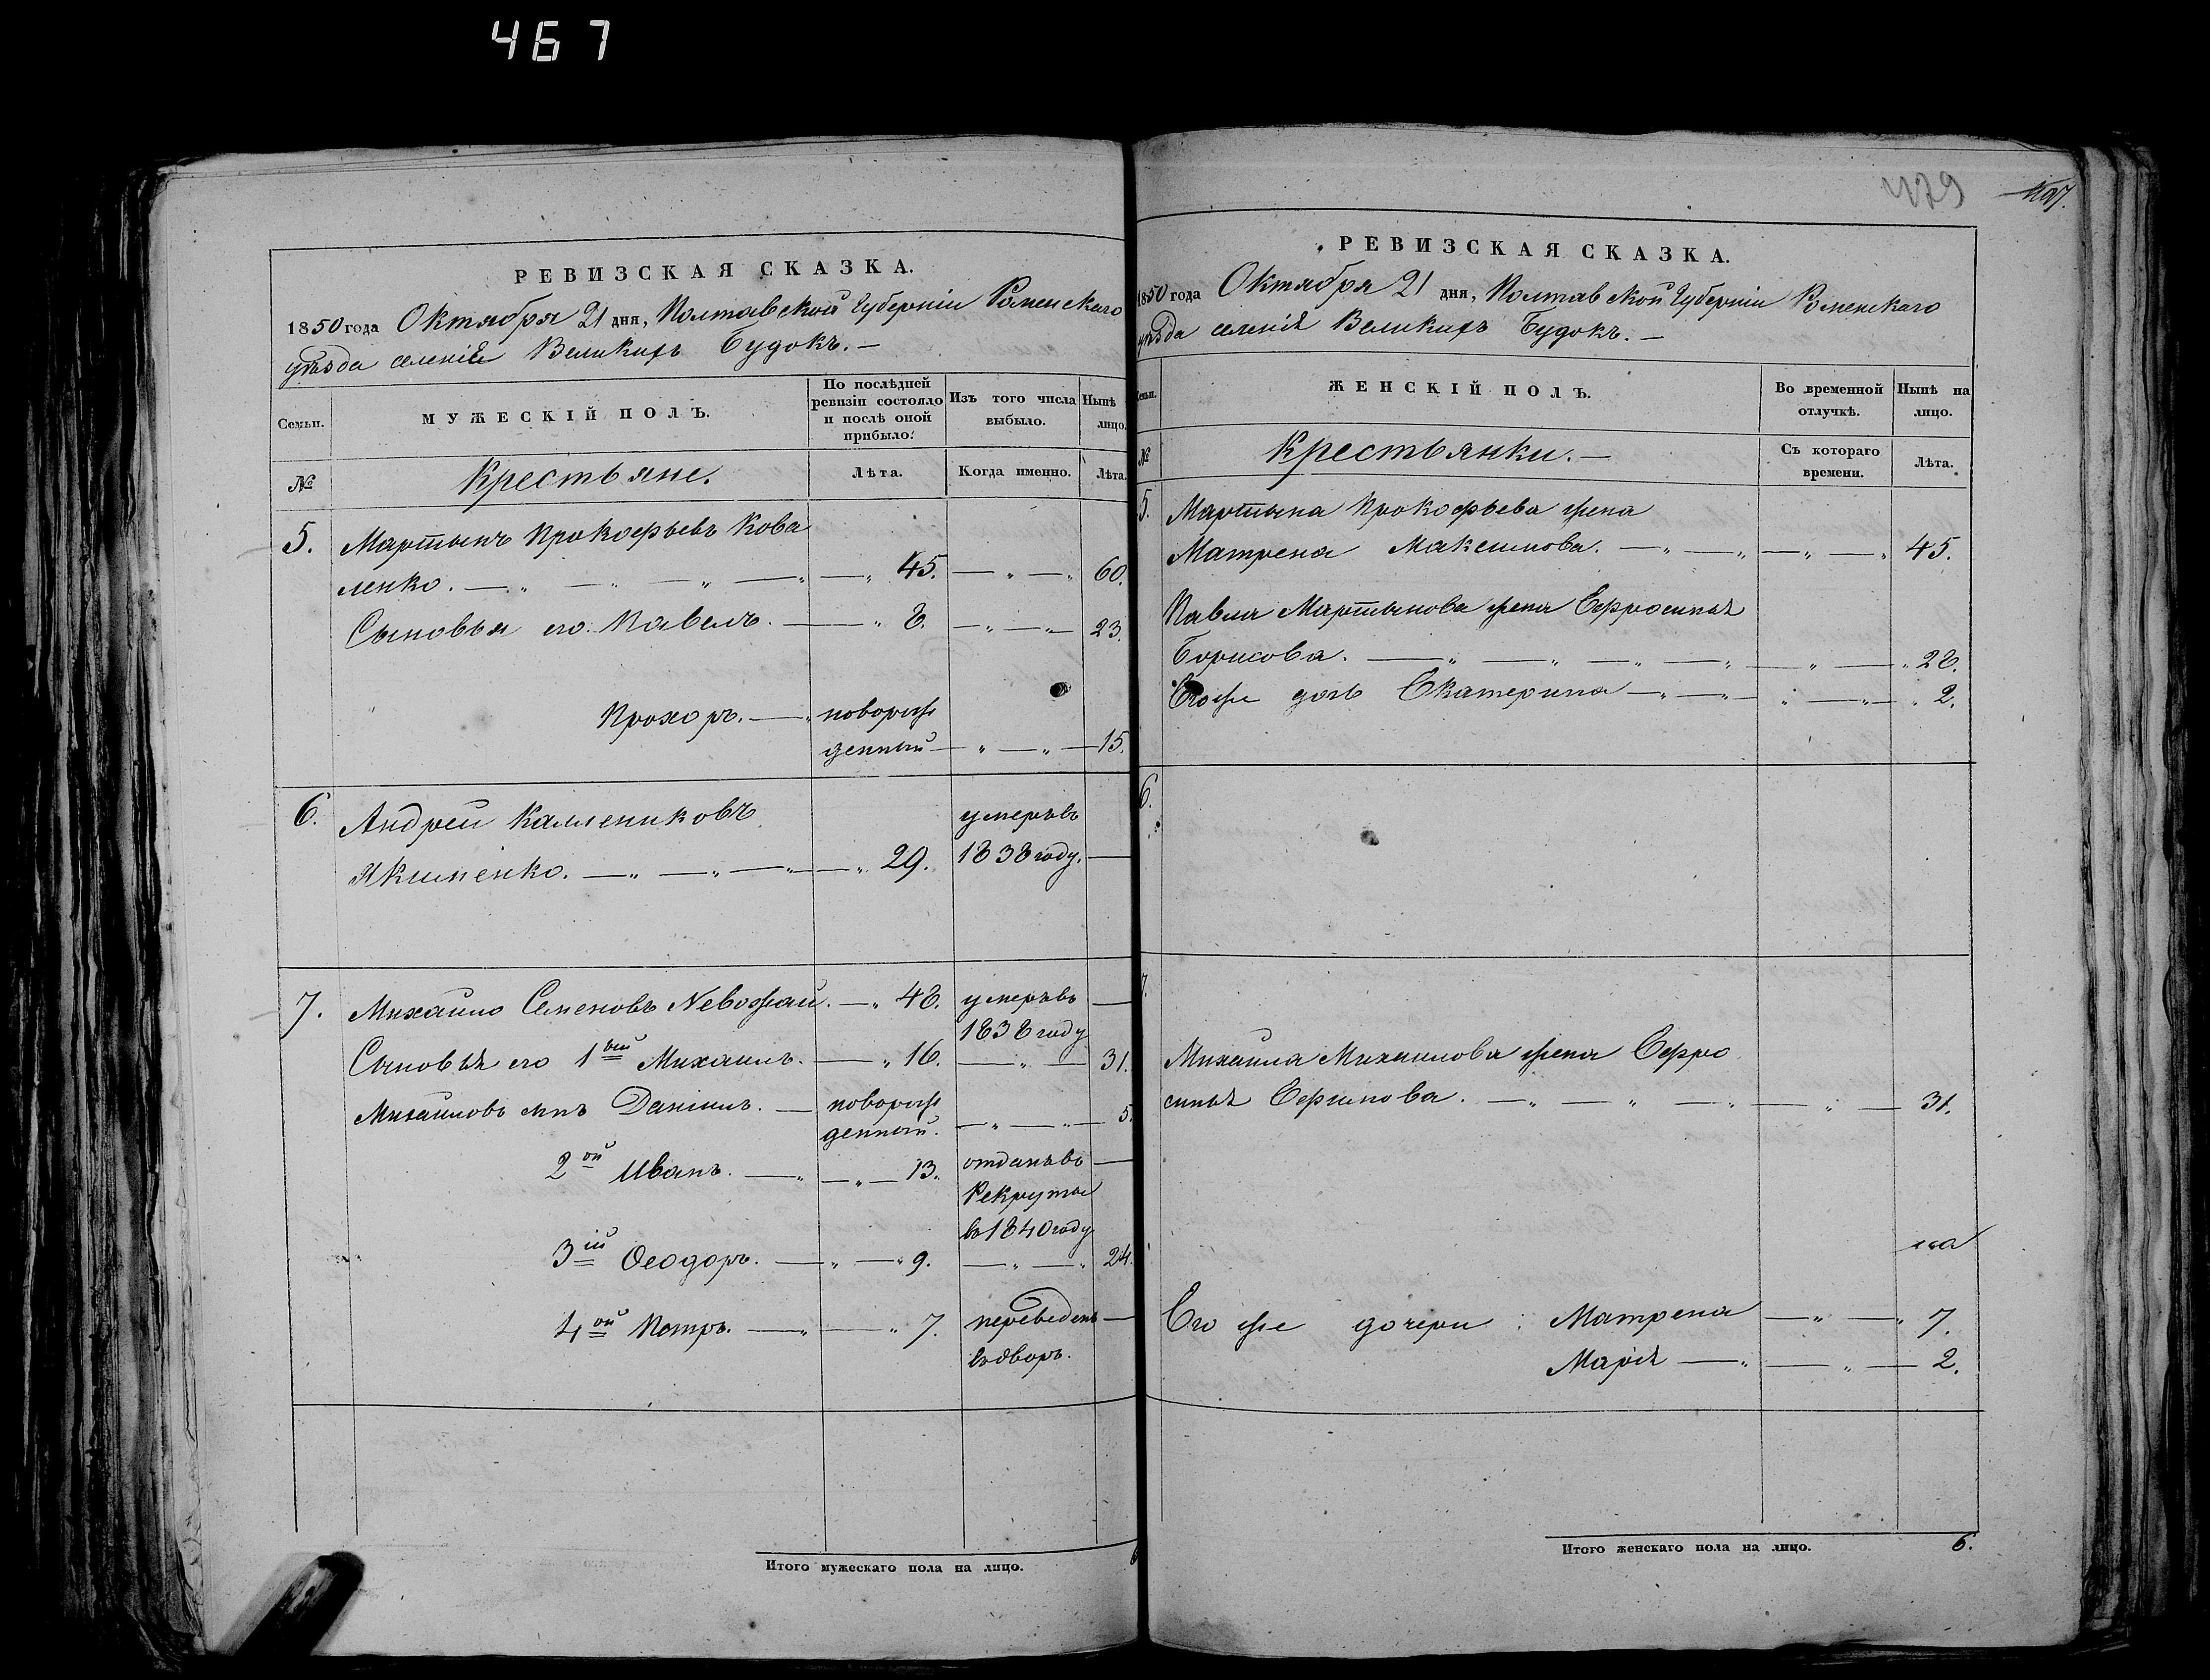 467
РЕВИЗСКАЯ СКАЗКА.
1850 года Октября 21 дня, Полтавской Губерніи Роменскаго
уѣзда селенія Великихъ Будокъ. —
Семьи.
МУЖЕСКІЙ ПОЛЪ.
По послѣдней ревизіи состояло и послѣ оной прибыло.
Изъ того числа выбыло.
Нынѣ лицо.
№
Крестьяне.
Лѣта.
Когда именно.
Лѣта.
5. Мартынъ Прокофьевъ Кова
ленко. — 45. — 60.
Сыновья его Павелъ. — 8. — 23.
Прохоръ. — новорож
денный — 15.
6. Андрей Каллениковъ умеръ въ
Якименко. — 29. 1838 году. —
7. Михайло Семеновъ Невожай. — 48. умеръ въ —
1838 году
Сыновья его 1ый Михаилъ. — 16. — 31.
Михайловъ сынъ Даніилъ. — новорож
денный. — 5.
2ой Иванъ. — 13. отданъ въ —
Рекруты
въ 1840 году
3ій Ѳеодоръ. — 9. — 24.
4ой Петръ. — 7. переведенъ —
въ дворъ.
Итого мужескаго пола на лицо. 6
479
РЕВИЗСКАЯ СКАЗКА.
1850 года Октября 21 дня, Полтавской Губерніи Роменскаго
уѣзда селенія Великихъ Будокъ. —
Семьи.
ЖЕНСКІЙ ПОЛЪ.
Во временной отлучкѣ.
Нынѣ на лицо.
№
Крестьянки. —
Съ котораго времени.
Лѣта.
5. Мартына Прокофьева жена
Матрена Максимова. — 45.
Павла Мартынова жена Ефросинья
Борисова. — 28.
Его же дочь Екатерина — 2.
6.
7.
Михаила Михайлова жена Ефро
синья Ефимова. — 31.
Его же дочери: Матрена — 7.
Марія — 2.
Итого женскаго пола на лицо. 6.